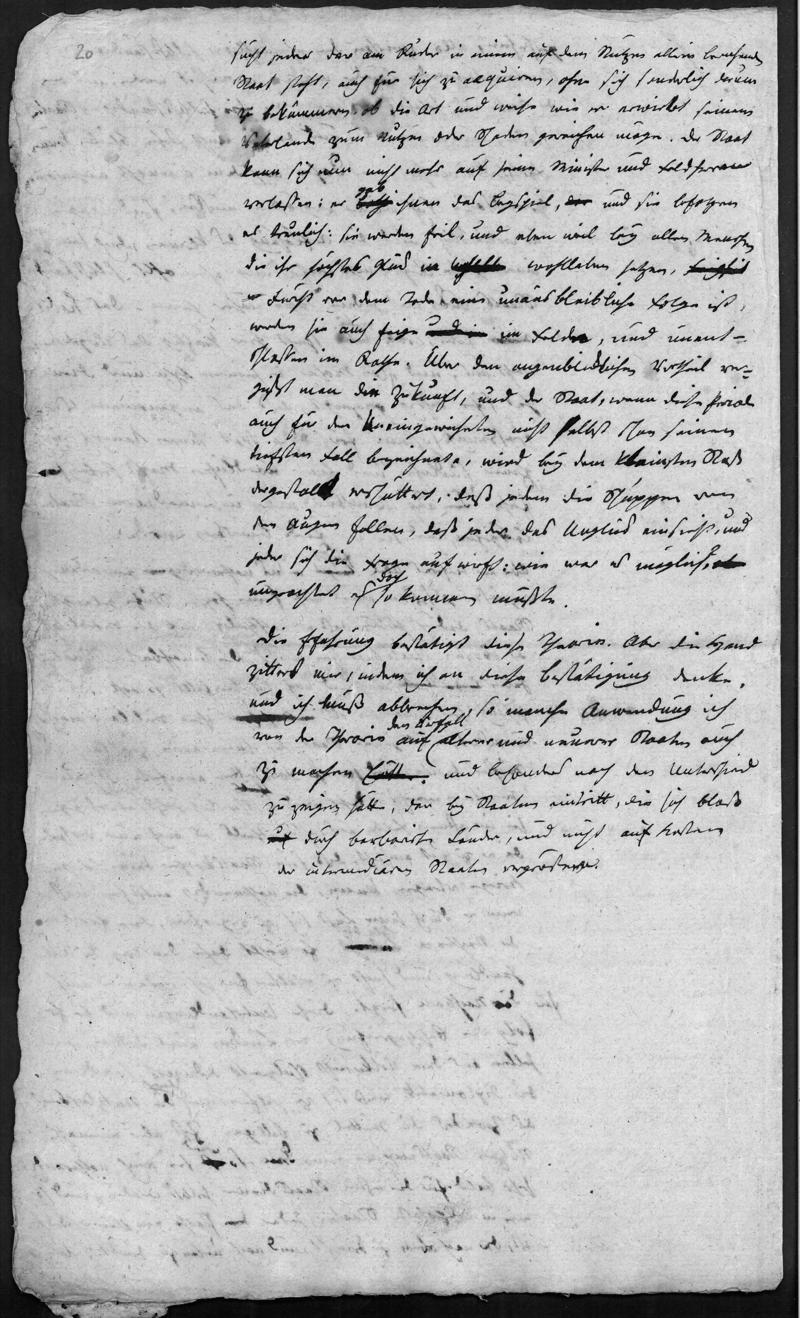 20
sucht jeder der am Ruder in einem auf dem Nutzen allein beruhenden
Staat steht, auch für sich zu acquiriren, ohne sich sonderlich darum
zu bekümmern ob die Art und weise wie er erwirbt seinem
Vaterlande zum nutzen oder Schaden gereichen möge. Der Staat
kann sich nun nicht mehr auf seine Minister und Feldherren
verlassen: er gab ihnen das Beyspiel, und sie befolgen
es treulich: sie werden feil, und eben weil bey allen Menschen
die ihr höchstes Glück in wohlleben setzen,
Furcht vor dem Tode eine unausbleibliche Folge ist,
werden sie auch feige im Felde, und unent-
schlossen im Rathe. Über den augenblicklichen Vortheil ver-
gißt man die Zukunft, und der Staat, wenn diese Periode
auch für den Uneingeweihten nicht selbst schon seinen
tiefsten Fall bezeichnete, wird bey dem kleinsten Stoß
dergestalt erschüttert, daß jedem die Schuppen von
den Augen fallen, daß jeder das Unglück einsieht, und
jeder sich die Frage aufwirft: wie war es möglich,
ungeachtet es doch so kommen mußte.
Die Erfahrung bestätigt diese Theorie. Aber die Hand
zittert mir, indem ich an diese Bestätigung denke,
und ich muß abbrechen, so manche Anwendung ich
von der Theorie auf den Verfall älterer und neuerer Staaten auch
zu machen und besonders noch den Unterschied
zu zeigen hätte, der bey Staaten eintritt, die sich bloß
durch barbarische Länder, und nicht auf Kosten
der intermediären Staaten vergrößern.